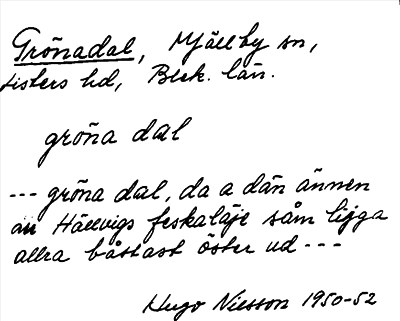 Grönadal, Mjällby sn,
Listers hd, Blek. län.
gröna dal
--- gröna dal, da a dän ännen
au Hällvigs feskaläje såm ligga
allra båstast öster ud ---
Hugo Nilsson 1950-52